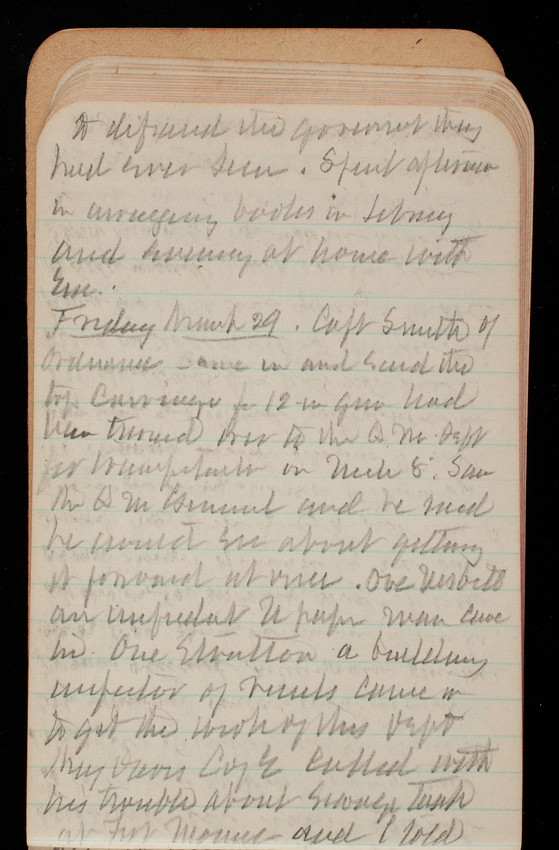 to defraud the goverment they
had ever seen. Spent afternoon
in arranging books in library
and evening at home with
Em.
Friday March 29. Capt Smith of
Ordnance came in and said the
top Carriage for 12 in gun had
been turned over to the Q. M. Dept
for on Mch 8. Saw
the Q M General and he said
he would see about getting
it forward at once. One
an N Y paper man came
in. One Stratton a building
inspector of came in
to get the work of this Dept
Maj Davis Corps E called with
his trouble about Sewage tank
at Fort Monroe and I told